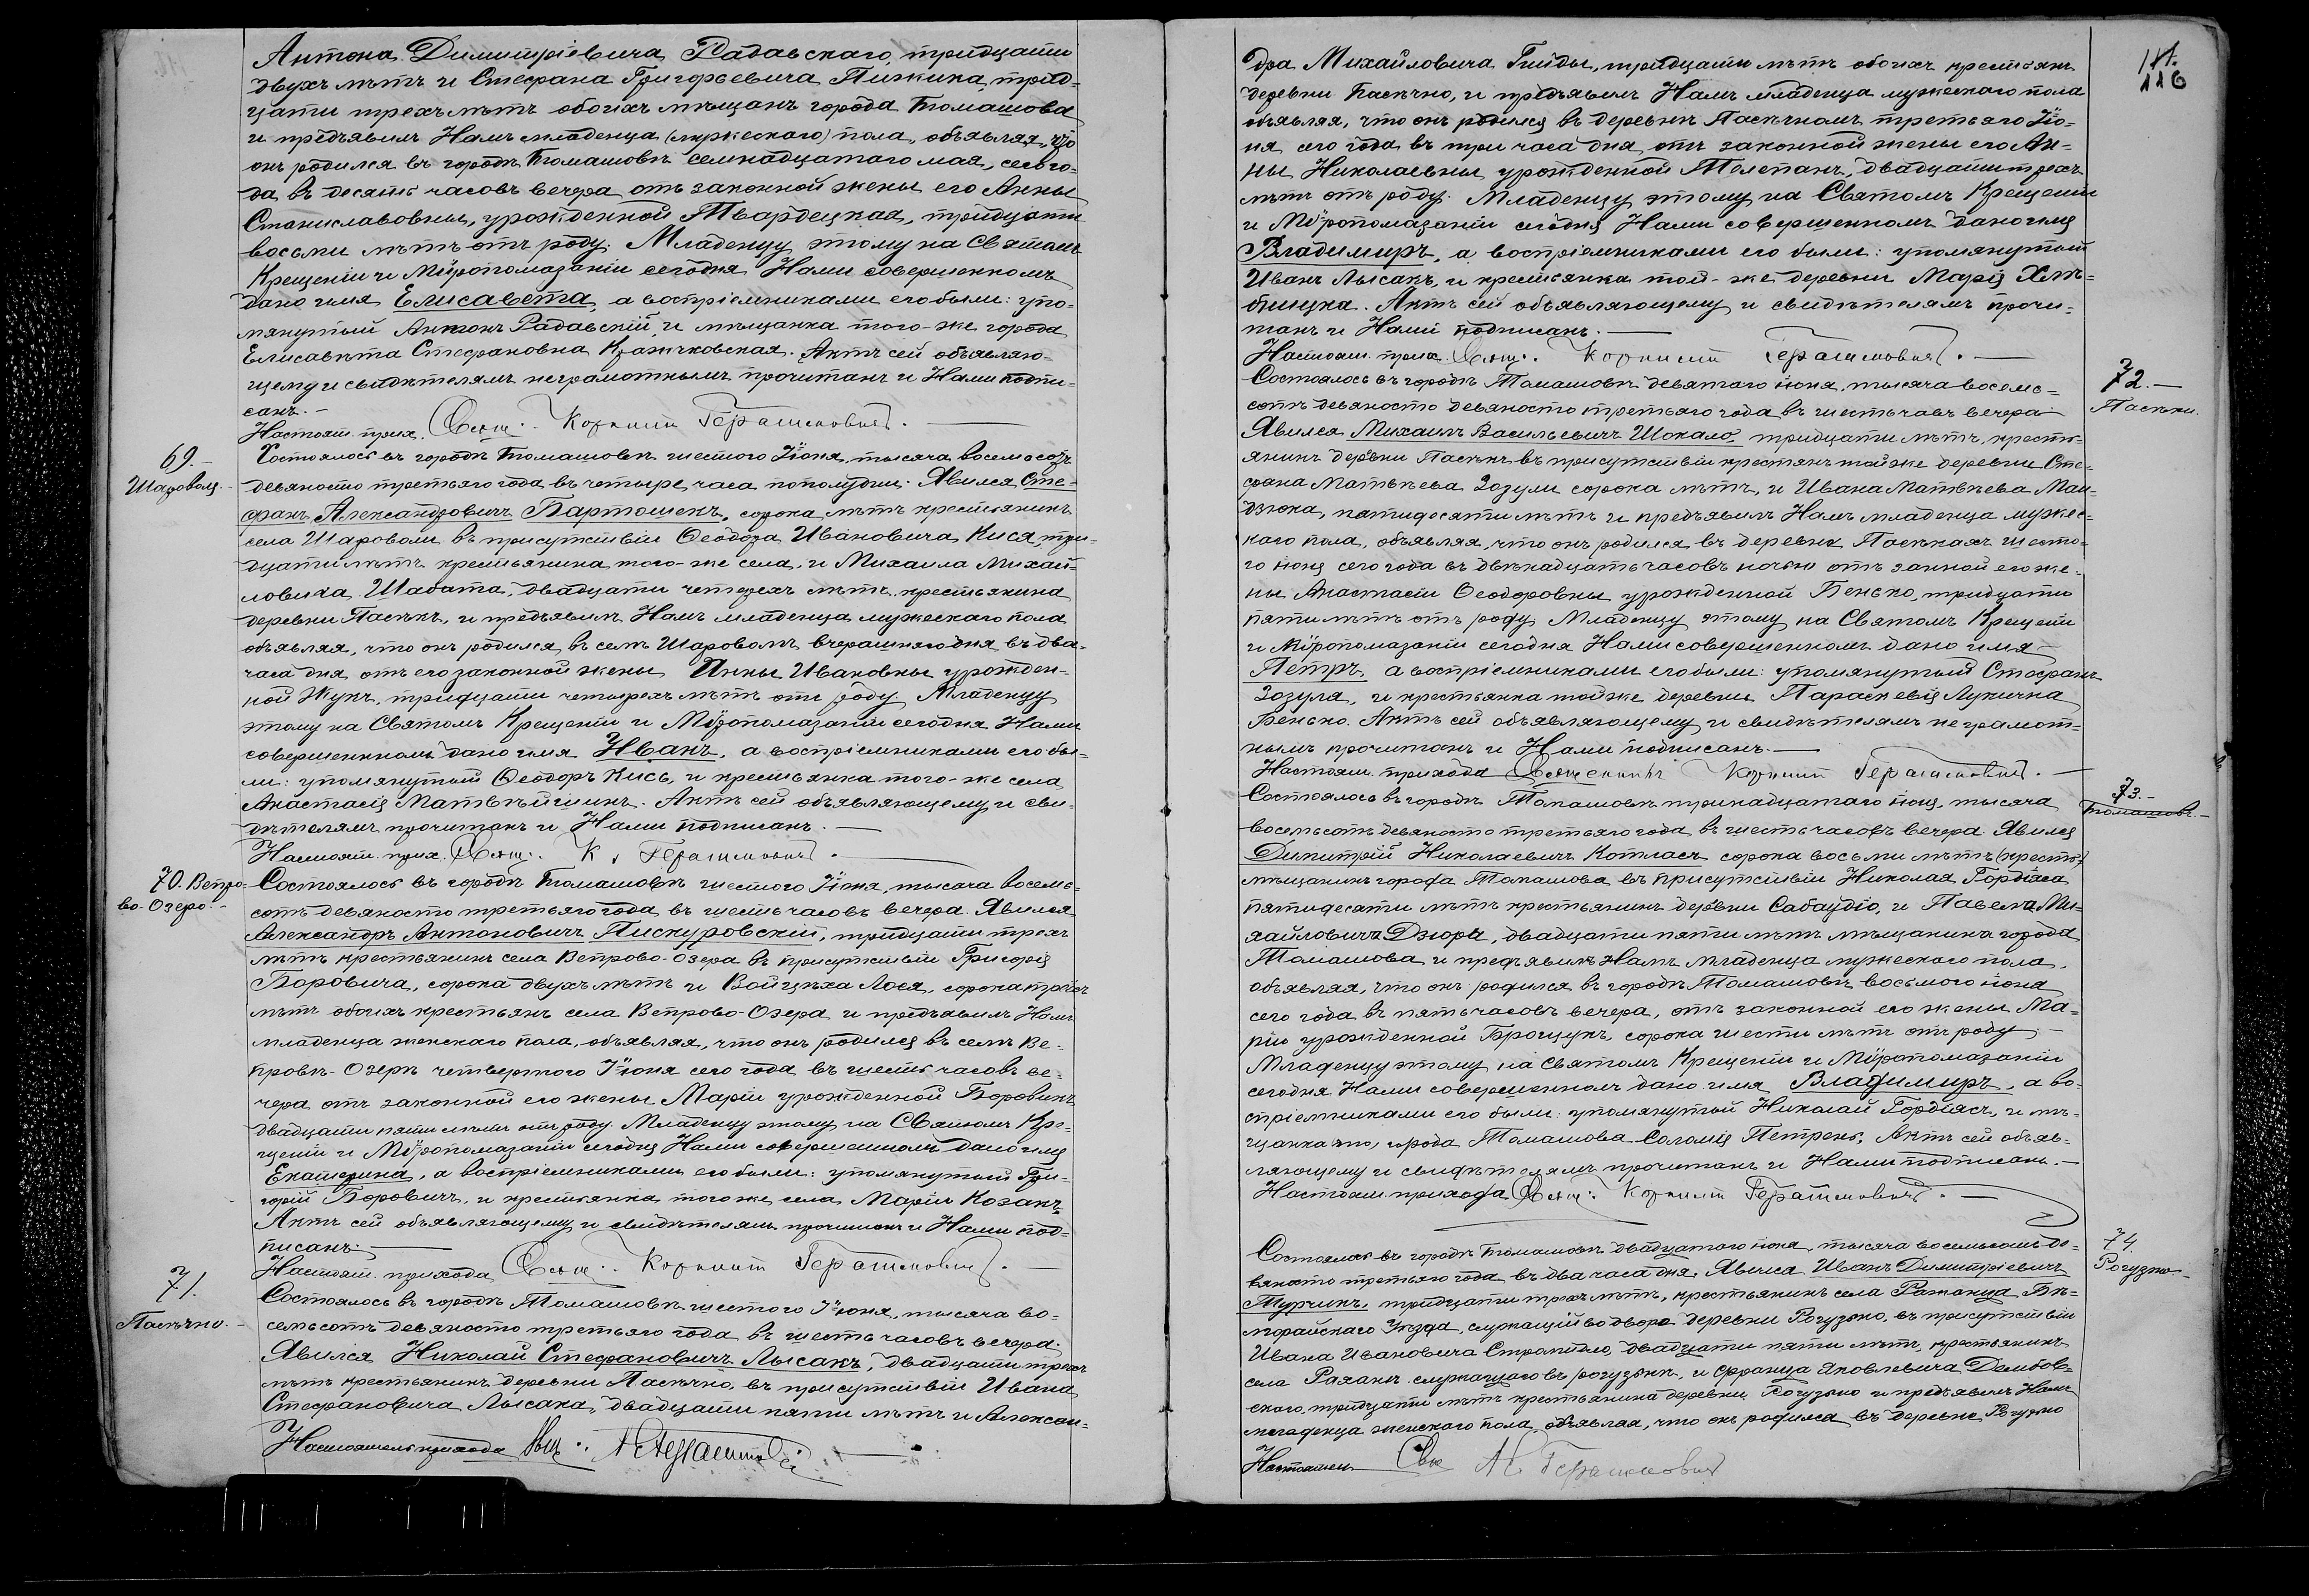 Антона Димитріевича Радавскаго, тридцати
двухъ лѣтъ и Стефана Григорьевича Пижика, трид-
цати трехъ лѣтъ обоихъ мѣщанъ города Томашова
и предъявилъ Намъ младенца (мужескаго) пола, объявляя, что
онъ родился въ городѣ Томашовѣ семнадцатаго мая, сего го-
да въ десять часовъ вечера отъ законной жены его Анны
Станиславовны, урожденной Твардецкая, тридцати
восьми лѣтъ отъ роду. Младенцу этому на Святомъ
Крещеніи и Мѵропомазаніи сегодня Нами совершенномъ
дано имя Елисавета, а воспріемниками его были: упо-
мянутый Антонъ Радавскій, и мѣщанка того-же города
Елисавѣта Стефановна Кражчковская. Актъ сей объявляю-
щему и свидѣтелямъ неграмотнымъ прочитанъ и Нами подпи-
санъ.-
Настоят. прих. Свящ. Корнилій Герасимовичъ.
69.-
Шаровол.
Состоялось въ городѣ Томашовѣ шестого Іюня, тысяча восемьсотъ
девяносто третьяго года въ четыре часа пополудни. Явился Сте-
фанъ Александровичъ Партошекъ, сорока лѣтъ крестьянинъ
села Шароволи въ присутствіи Ѳеодора Ивановича Кися, три-
дцати лѣтъ крестьянина того-же села, и Михаила Михай-
ловича Шабата, двадцати четырехъ лѣтъ, крестьянина
деревни Пасѣкъ, и предъявилъ Намъ младенца мужескаго пола
объявляя, что онъ родился въ селѣ Шароволѣ вчерашняго дня въ два
часа дня отъ его законной жены Анны Ивановны урожден-
ной Жукъ, тридцати четырехъ лѣтъ отъ роду. Младенцу
этому на Святомъ Крещеніи и Мѵропомазаніи сегодня Нами
совершенномъ дано имя Иванъ, а воспріемниками его бы-
ли: упомянутый Ѳеодоръ Кись, и крестьянка того-же села
Анастасія Матвѣйшинъ. Актъ сей объявляющему и сви-
дѣтелямъ прочитанъ и Нами подписанъ.
Настоят. прих. Свящ. К. Герасимовичъ.
70. Вепро-
во-Озеро.-
Состоялось въ городѣ Томашовѣ шестого Іюня, тысяча восемь-
сотъ девяносто третьяго года въ шесть часовъ вечера. Явился
Александръ Антоновичъ Пискуровскій, тридцати трехъ
лѣтъ крестьянинъ села Вепрово-Озера въ присутствіи Григорія
Боровича, сорока двухъ лѣтъ и Войцѣха Лося, сорока трехъ
лѣтъ обоихъ крестьянъ села Вепрово-Озера и предъявилъ Намъ
младенца женскаго пола, объявляя, что онъ родился въ селѣ Ве-
провѣ-Озерѣ четвертого Іюня сего года въ шесть часовъ ве-
чера отъ законной его жены Маріи урожденной Боровичъ
двадцати пяти лѣтъ отъ роду. Младенцу этому на Святомъ Кре-
щеніи и Мѵропомазаніи сегодня Нами совершенномъ дано имя
Екатерина, а воспріемниками его были: упомянутый Гри-
горій Боровичъ, и крестьянка того же села Марія Козакъ.
Актъ сей объявляющему и свидѣтелямъ прочитанъ и Нами под-
писанъ.
Настоят. прихода Свящ. Корнилій Герасимовичъ.
71.
Пасѣчно.
Состоялось въ городѣ Томашовѣ шестого Іюня, тысяча во-
семьсотъ девяносто третьяго года въ шесть часовъ вечера.
Явился Николай Стефановичъ Лысакъ, двадцати трехъ
лѣтъ крестьянинъ деревни Пасѣчно, въ присутствіи Ивана
Стефановича Лысака, двадцати пяти лѣтъ и Алексан-
Настоятель прихода Свящ.
111.
116
дра Михайловича Гнйды, тридцати лѣтъ обоихъ крестьянъ
деревни Пасѣчно, и предъявилъ Намъ младенца мужескаго пола
объявляя, что онъ родился въ деревнѣ Пасѣчномъ третьяго Ію-
ня сего года въ три часа дня отъ законной жены его Ан-
ны Николаевны урожденной Телепанъ, двадцати трехъ
лѣтъ отъ роду. Младенцу этому на Святомъ Крещеніи
и Мѵропомазаніи сегодня Нами совершенномъ дано имя
Владимиръ, а воспріемниками его были: упомянутый
Иванъ Лысакъ, и крестьянка той-же деревни Марія Хлѣ-
бницка. Актъ сей объявляющему и свидѣтелямъ прочи-
танъ и Нами подписанъ.
Настоят. прих. Свящ. Корнилій Герасимовичъ.
72.-
Пасѣки.
Состоялось въ городѣ Томашовѣ девятаго іюня, тысяча восемь-
сотъ девяносто девяносто третьяго года въ шесть часъ вечера
Явился Михаилъ Васильевичъ Шокало, тридцати лѣтъ, кресть-
янинъ деревни Пасѣкъ въ присутствіи крестьянъ той же деревни Сте-
фана Матвѣева Зозули сорока лѣтъ, и Ивана Матвѣева Ман-
дзюка, пятидесяти лѣтъ и предъявилъ Намъ младенца мужес-
каго пола, объявляя, что онъ родился въ деревнѣ Пасѣкахъ шесто-
го іюня сего года въ двѣнадцать часовъ ночью отъ законой его же-
ны Анастасіи Ѳеодоровны урожденной Бенько, тридцати
пяти лѣтъ отъ роду. Младенцу этому на Святомъ Крещеніи
и Мѵропомазаніи сегодня Нами совершенномъ дано имя
Петръ, а воспріемниками его были: упомянутый Стефанъ
Зозуля, и крестьянка той же деревни Параскевія Лукична
Бенько. Актъ сей объявляющему и свидѣтелямъ не грамот-
нымъ прочитанъ и Нами подписанъ.
Настоят. прихода Священникъ Корнилій Герасимовичъ.
73.-
Томашовъ.-
Состоялось въ городѣ Томашовѣ тринадцатаго іюня, тысяча
восемьсотъ девяносто третьяго года въ шесть часовъ вечера. Явился
Димитрій Николаевичъ Котласъ сорока восьми лѣтъ (кресть)
мѣщанинъ города Томашова въ присутствіи Николая Гордіяса
пятидесяти лѣтъ крестьянинъ деревни Сабаудіо, и Павелъ Ми-
хайловичъ Дзюра, двадцати пяти лѣтъ мѣщанина города
Томашова и предъявилъ Намъ младенца мужескаго пола,
объявляя, что онъ родился въ городѣ Томашовѣ восьмого іюня
сего года въ пять часовъ вечера, отъ законной его жены Ма-
ріи урожденной Брощукъ, сорока шести лѣтъ отъ роду
Младенцу этому на Святомъ Крещеніи и Мѵропомазаніи
сегодня Нами совершенномъ дано имя Владимиръ, а во-
спріемниками его были: упомянутый Николай Гордіясъ, и мѣ-
щанка города Томашова Саломія Петренъ. Актъ сей объяв-
ляющему и свидѣтелямъ прочитанъ и Нами подписанъ.-
Настоят. прихода Свящ. Корнилій Герасимовичъ.
74.
Рогузно.-
Состоялось въ городѣ Томашовѣ двадцатого іюня, тысяча восемьсотъ де-
вяносто третьяго года въ два часа дня. Явился Иванъ Димитріевичъ
Турчикъ, тридцати трехъ лѣтъ, крестьянинъ села Ражанца Бѣ-
лгорайскаго Уѣзда, служащій во дворѣ деревни Рогузно, въ присутствіи
Ивана Ивановича двадцати пяти лѣтъ, крестьянинъ
села служащаго въ рогузнѣ, и Франца Яковлевича Дембов-
скаго, тридцати лѣтъ крестьянина деревни Рогузно и предъявилъ Намъ
младенца женскаго пола, объявляя, что онъ родился въ деревнѣ Рогузно
Настоятель Свящ. К. Герасимовичъ